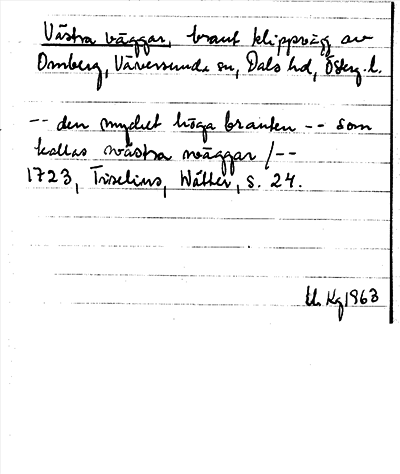 Västra väggar, brant klippvägg av
Omberg, Väversunda sn, Dals hd, Östg. l.
-- den mycket höga branten -- som
kallas wästra wäggar /--
1723, Tiselius, Wätter, s. 24.
Kg 1963